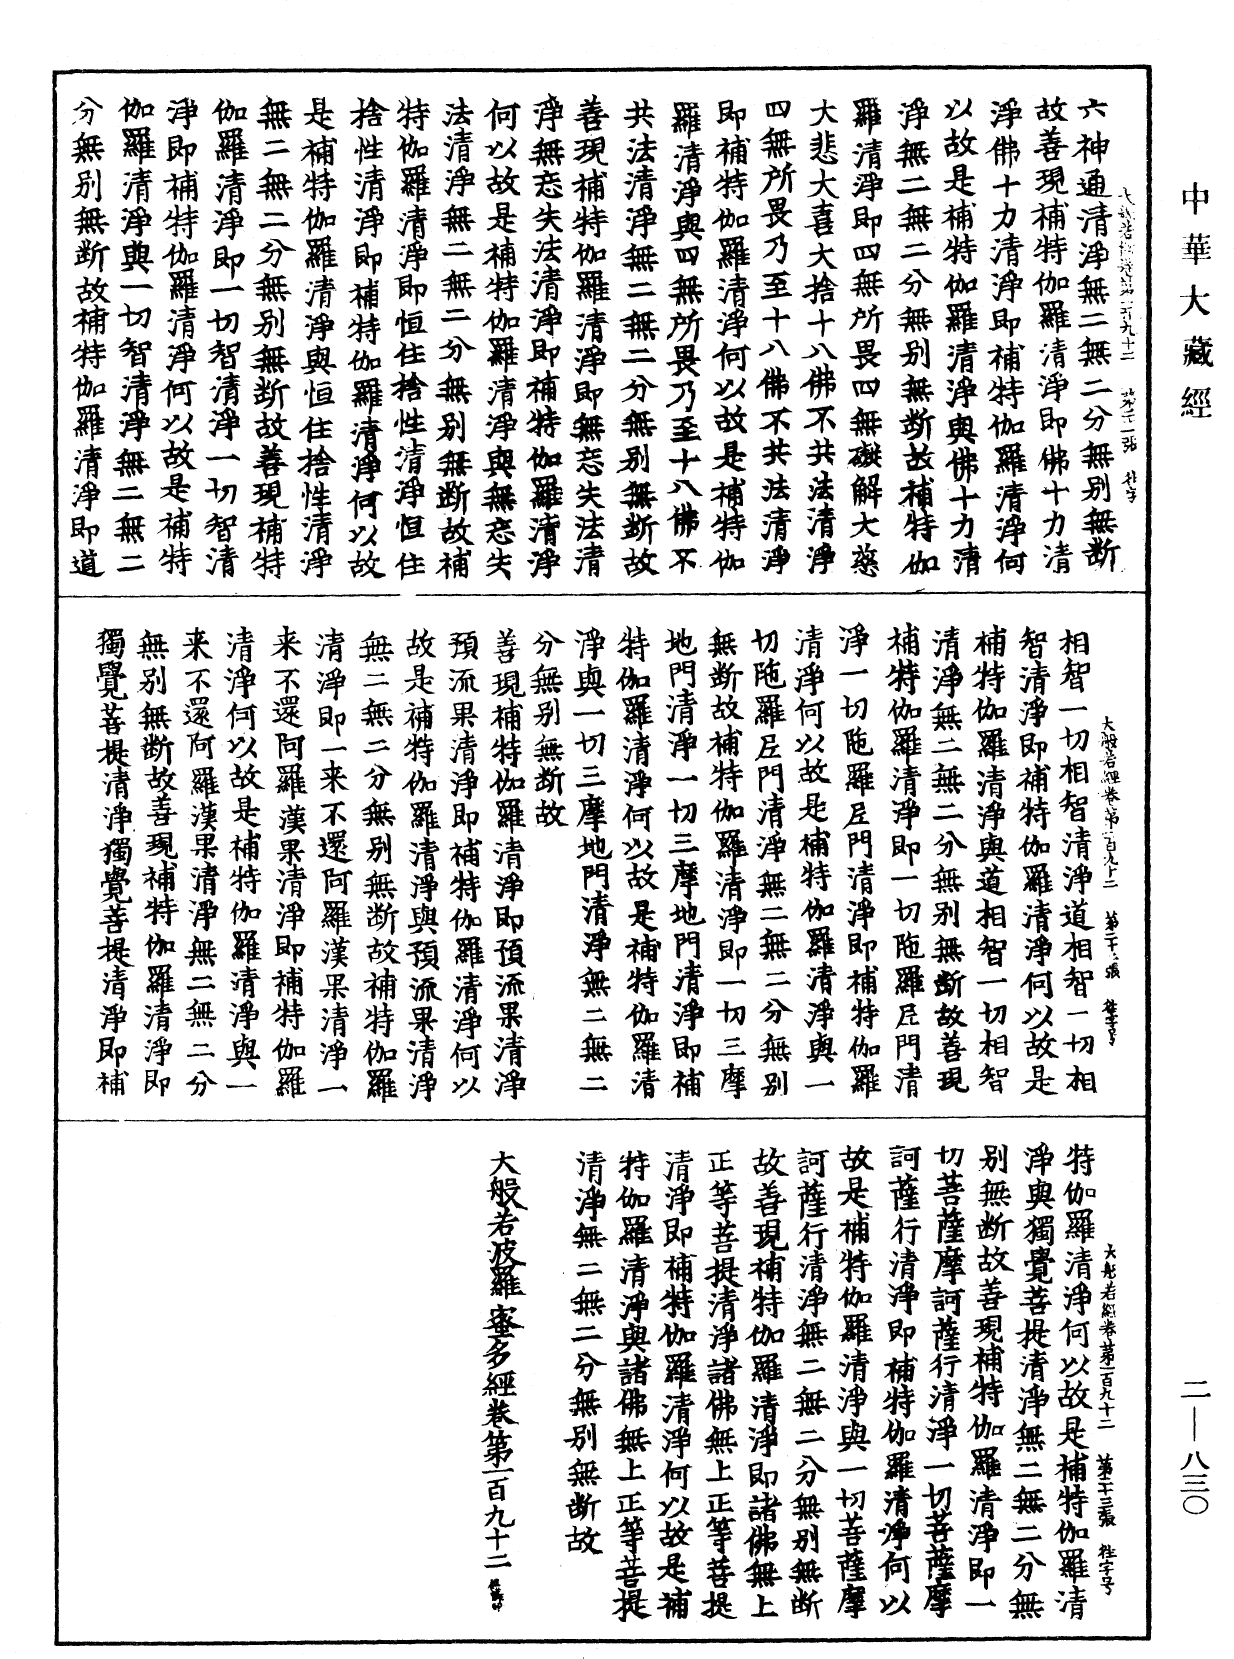 中華大藏經
六神通清淨無二無二分無別無断
故善現補特伽羅清淨即佛十力清
淨佛十力清淨即補特伽羅清淨何
以故是補特伽羅清淨與佛十力清
淨無二無二分無別無断故補特伽
羅清淨即四無所畏四無礙解大慈
大悲大喜大捨十八佛不共法清淨
四無所畏乃至十八佛不共法清淨
即補特伽羅清淨何以故是補特伽
羅清淨與四無所畏乃至十八佛不
共法清淨無二無二分無別無断故
善現補特伽羅清淨即無忘失法清
淨無忘失法清淨即補特伽羅清淨
何以故是補特伽羅清淨與無忘失
法清淨無二無二分無別無断故補
特伽羅清淨即恒住捨性清淨恒住
捨性清淨即補特伽羅清淨何以故
是補特伽羅清淨與恒住捨性清淨
無二無二分無別無断故善現補特
伽羅清淨即一切智清淨一切智清
淨即補特伽羅清淨何以故是補特
伽羅清淨與一切智清淨無二無二
分無別無断故補特伽羅清淨即道
大般若經卷第一百九十二 第二十二張 往字号
相智一切相智清淨道相智一切相
智清淨即補特伽羅清淨何以故是
補特伽羅清淨與道相智一切相智
清淨無二無二分無別無断故善現
補特伽羅清淨即一切陁羅尼門清
淨一切陁羅尼門清淨即補特伽羅
清淨何以故是補特伽羅清淨與一
切陁羅尼門清淨無二無二分無別
無断故補特伽羅清淨即一切三摩
地門清淨一切三摩地門清淨即補
特伽羅清淨何以故是補特伽羅清
淨與一切三摩地門清淨無二無二
分無別無断故
善現補特伽羅清淨即預流果清淨
預流果清淨即補特伽羅清淨何以
故是補特伽羅清淨與預流果清淨
無二無二分無別無断故補特伽羅
清淨即一来不還阿羅漢果清淨一
来不還阿羅漢果清淨即補特伽羅
清淨何以故是補特伽羅清淨與一
来不還阿羅漢果清淨無二無二分
無別無断故善現補特伽羅清淨即
獨覺菩提清淨獨覺菩提清淨即補
大般若經卷第一百九十二 第二十三張 往字号
特伽羅清淨何以故是補特伽羅清
淨與獨覺菩提清淨無二無二分無
別無断故善現補特伽羅清淨即一
切菩薩摩訶薩行清淨一切菩薩摩
訶薩行清淨即補特伽羅清淨何以
故是補特伽羅清淨與一切菩薩摩
訶薩行清淨無二無二分無別無断
故善現補特伽羅清淨即諸佛無上
正等菩提清淨諸佛無上正等菩提
清淨即補特伽羅清淨何以故是補
特伽羅清淨與諸佛無上正等菩提
清淨無二無二分無別無断故
大般若波羅蜜多經卷第一百九十二
二—八三〇